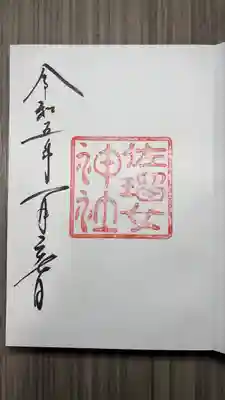 佐瑠女
神社
令和五年一月六日